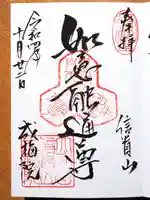 奉拝
信貴山
如意融通尊
成福院
令和四年
十月廿二日